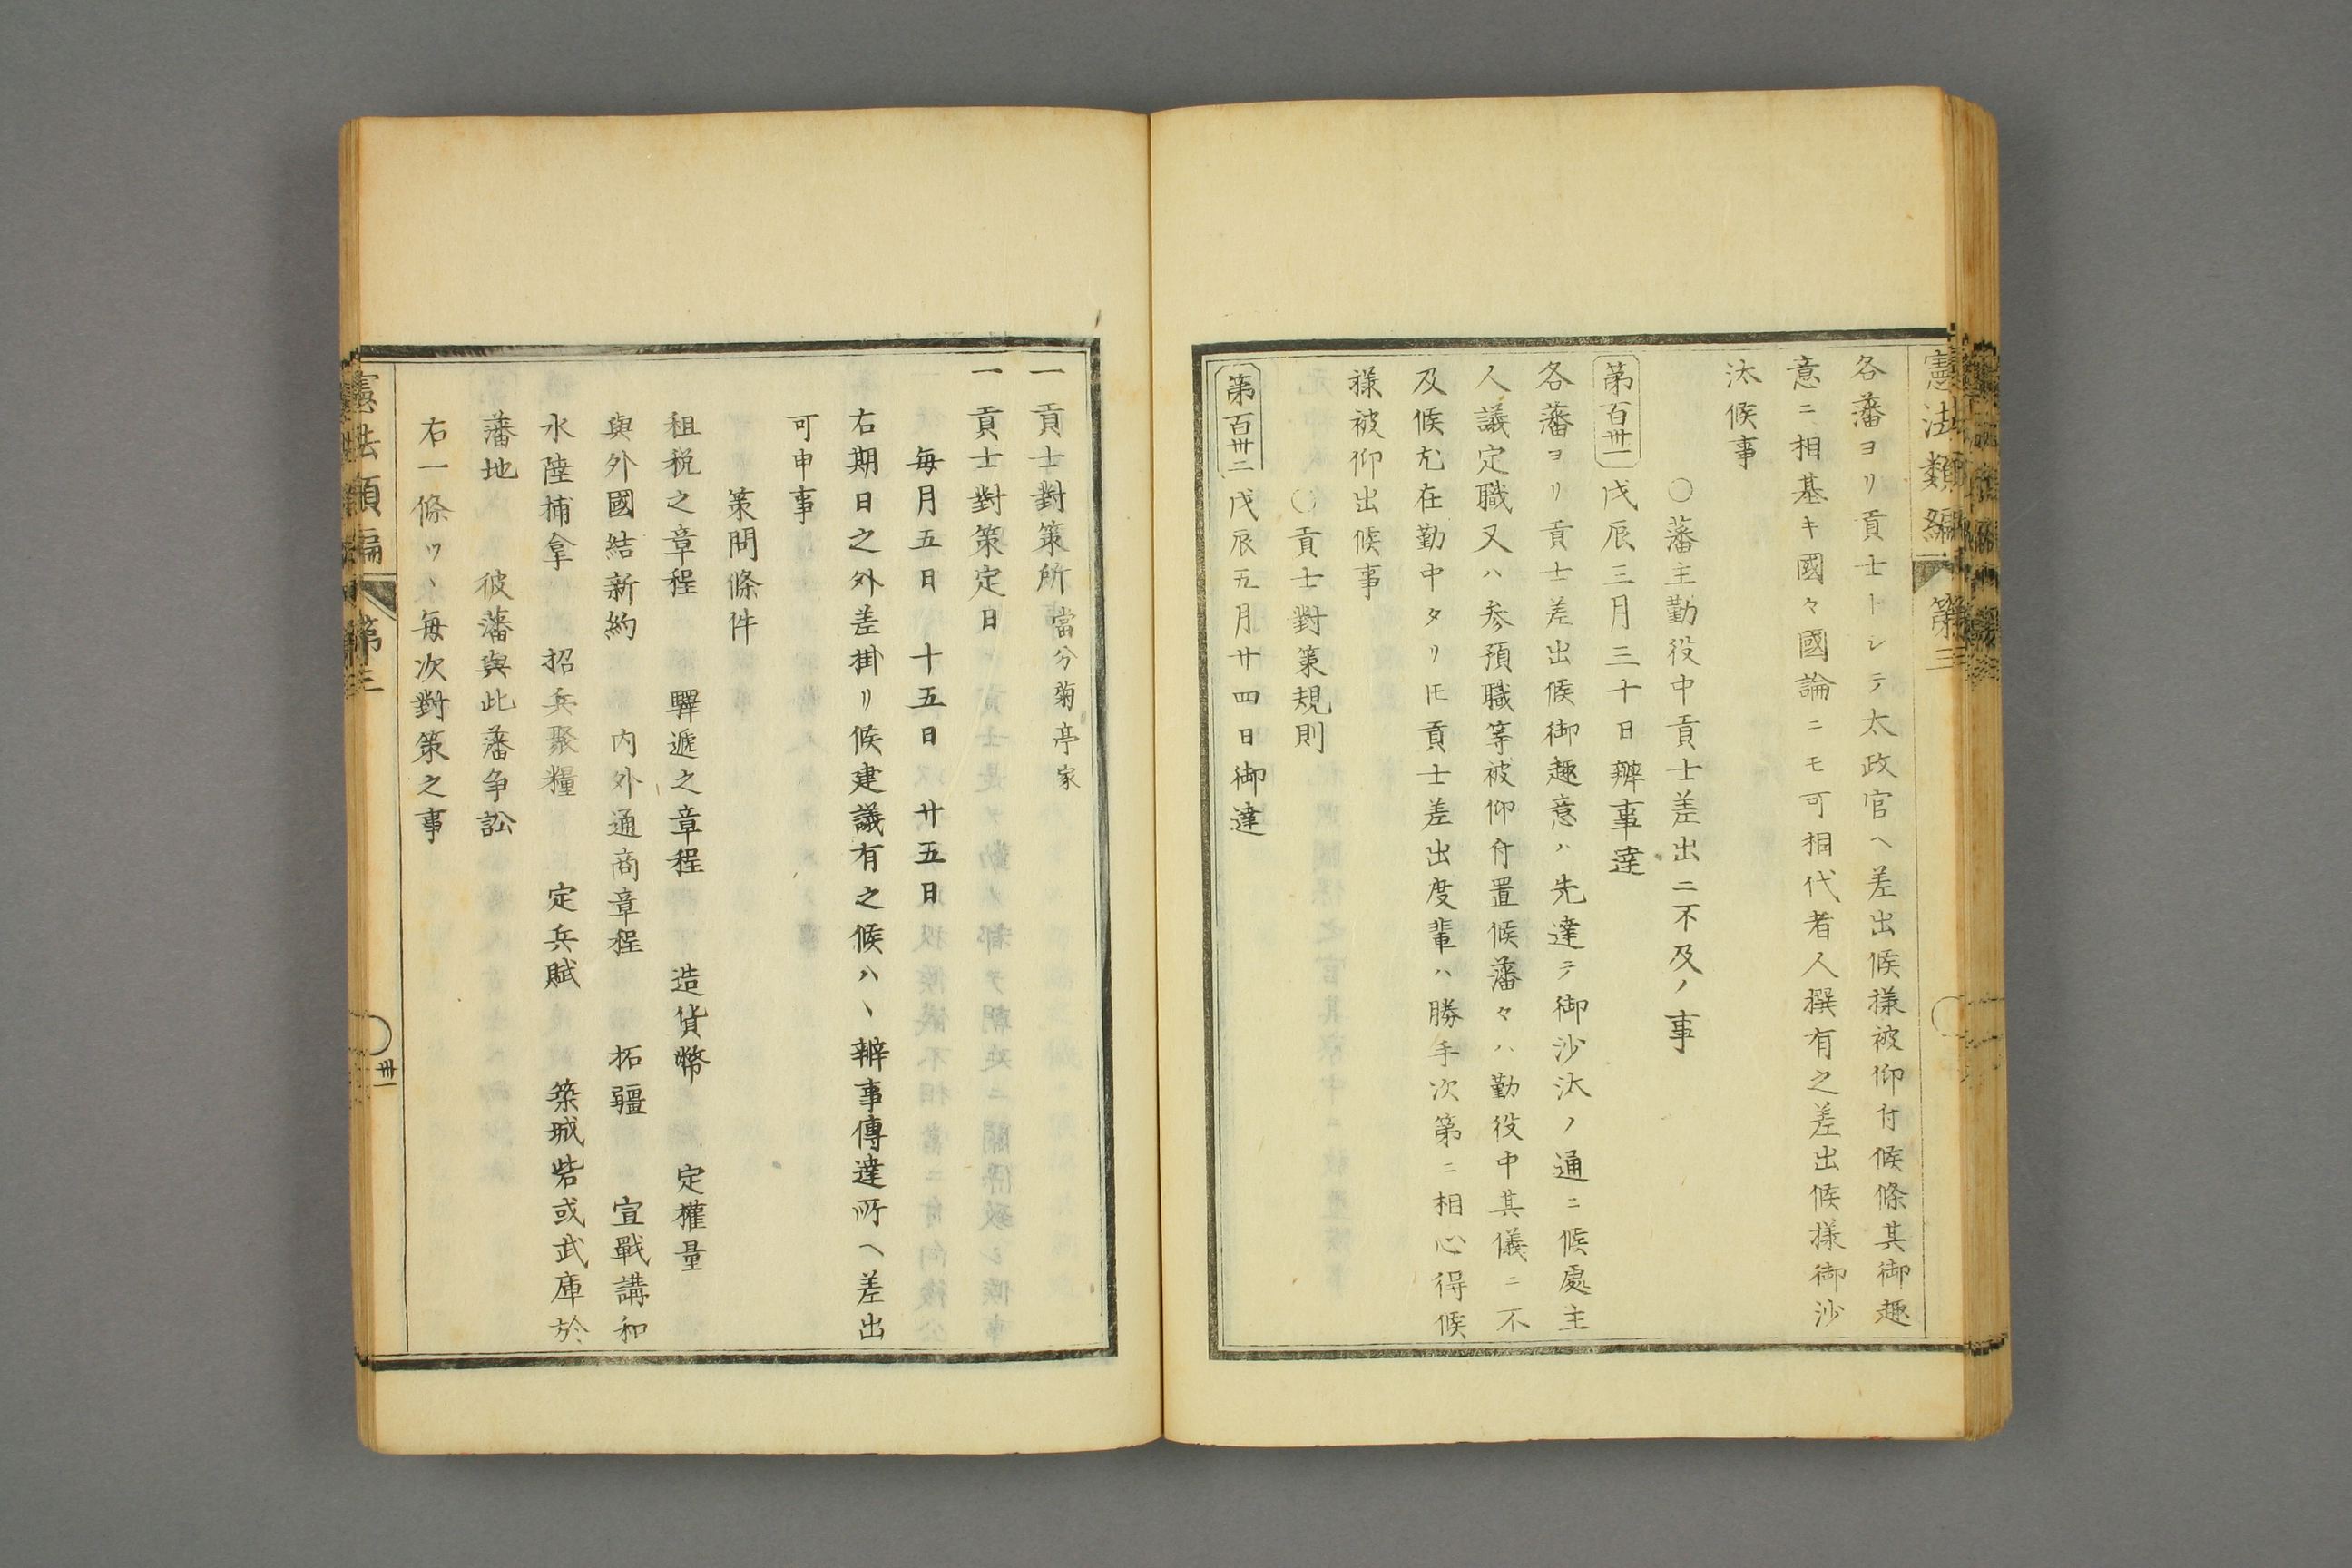 憲法類編 第三
各藩ヨリ貢士トシテ太政官ヘ差出候様被仰付候條其御趣
意ニ相基キ國々國論ニモ可相代者人撰有之差出候様御沙
汰候事
○藩主勤役中貢士差出ニ不及ノ事
第百卅一 戊辰三月三十日辨事達
各藩ヨリ貢士差出候御趣意ハ先達テ御沙汰ノ通ニ候處主
人議定職又ハ参預職等被仰付置候藩々ハ勤役中其儀ニ不
及候尤在勤中タリ𪜈貢士差出度輩ハ勝手次第ニ相心得候
様被仰出候事
○貢士對策規則
第百卅二 戊辰五月廿四日御達
一貢士對策所 當分菊亭家
一貢士對策定日
毎月五日 十五日 廿五日
右期日之外差掛リ候建議有之候ハヽ辨事傳達所ヘ差出
可申事
策問條件
租税之章程 驛遞之章程 造貨幣 定權量
與外國結新約 内外通商章程 拓疆 宣戰講和
水陸捕拿 招兵聚糧 定兵賦 築城砦或武庫於
藩地 彼藩與此藩争訟
右一條ツヽ毎次對策之事
憲法類編 第三
卅一